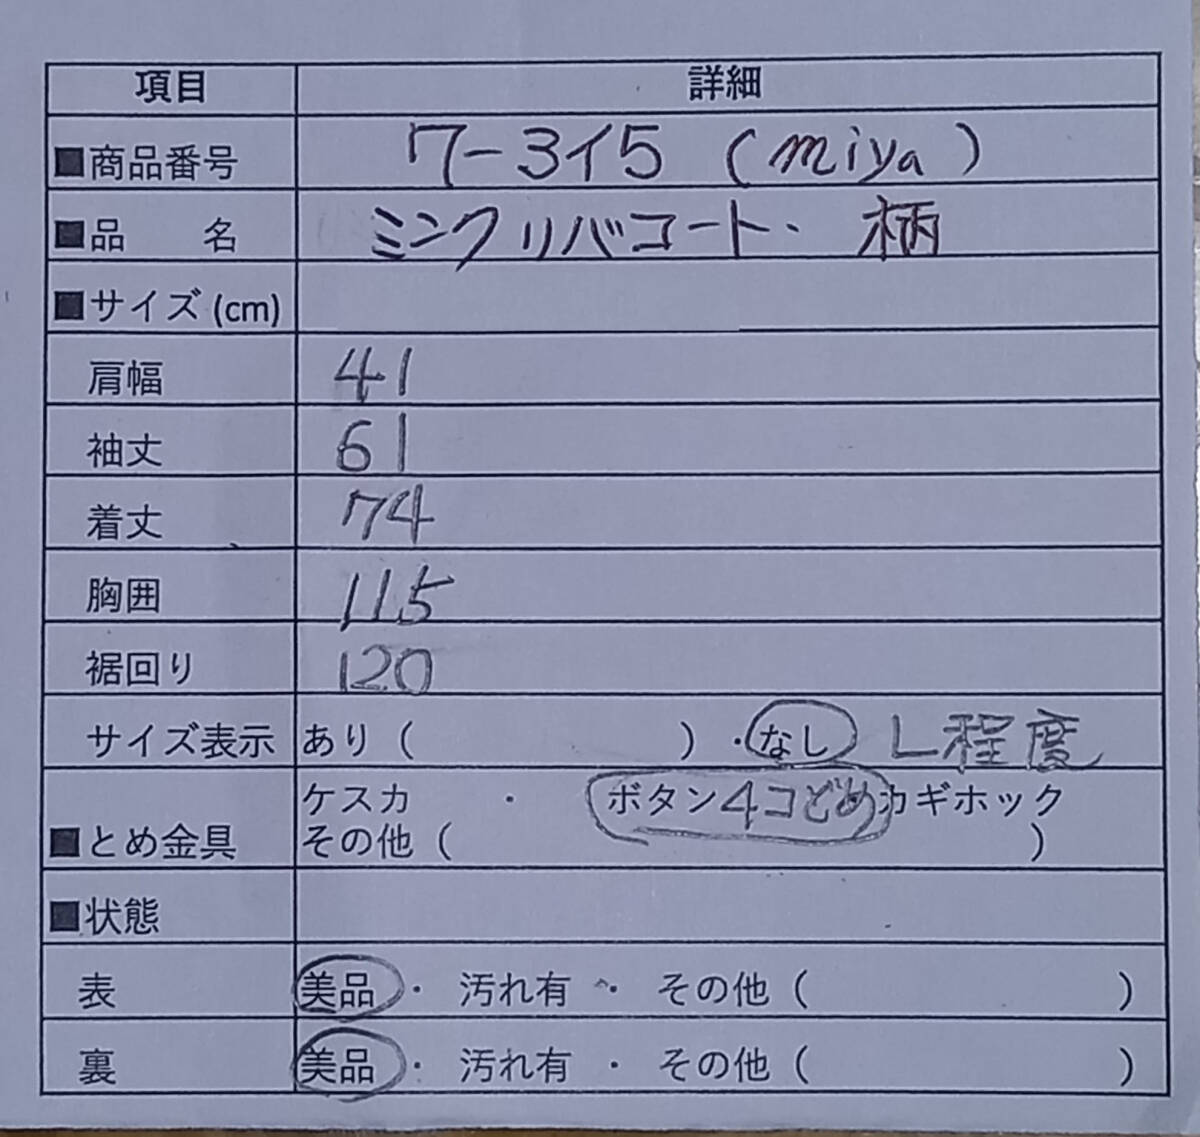 項目 詳細
■商品番号 7-3イ5 (miya)
■品 名 ミンクリバコート・柄
■サイズ(cm)
肩幅 41
袖丈 61
着丈 74
胸囲 115
裾回り 120
サイズ表示 あり( )・なし L程度
■とめ金具 ケスカ ・ ボタン4コどめカギホック
その他( )
■状態
表 美品・ 汚れ有 ・ その他( )
裏 美品・ 汚れ有 ・ その他( )